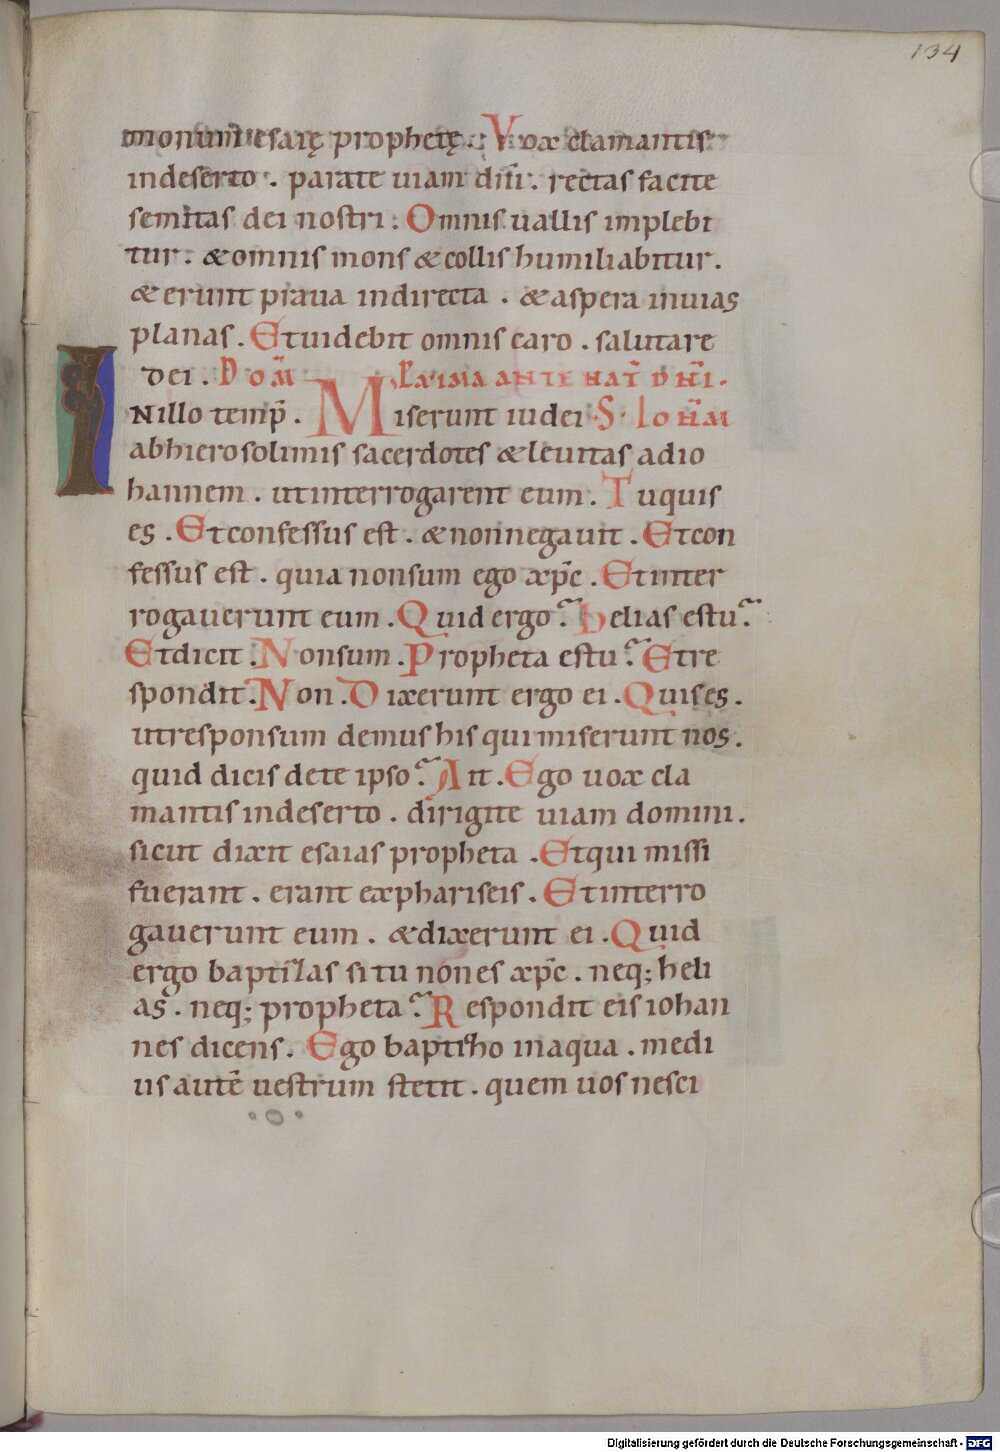 134
monum esaię prophetę. Vox clamantis
indeserto. parate uiam dn̄i. rectas facite
semitas dei nostri. Omnis uallis implebi
tur. & omnis mons & collis humiliabitur.
& erunt praua indirecta. & aspera inuias
planas. Et uidebit omnis caro. salutare
dei. DOM̄ PʳXIMA ANTE NAT̄ DN̄I.
INillo temp̄. Miserunt iudei S. IOH̄M
abhierosolimis sacerdotes & leuitas adio
hannem. utinterrogarent eum. Tuquis
es. Etconfessus est. & nonnegauit. Etcon
fessus est. quia nonsum ego xp̄c. Etinter
rogauerunt eum. Quid ergo? Helias estu?
Etdicit. Nonsum. Propheta estu? Etre
spondit. Non. Dixerunt ergo ei. Quises.
utresponsum demus his qui miserunt nos.
quid dicis dete ipso? Ait. Ego uox cla
mantis indeserto. dirigite uiam domini.
sicut dixit esaias propheta. Etqui missi
fuerant. erant exphariseis. Etinterro
gauerunt eum. & dixerunt ei. Quid
ergo baptizas si tu nones xp̄c. neq; heli
as. neq; propheta? Respondit eis iohan
nes dicens. Ego baptizo inaqua. medi
us autē uestrum stetit. quem uos nesci
Digitalisierung gefördert durch die Deutsche Forschungsgemeinschaft - DFG